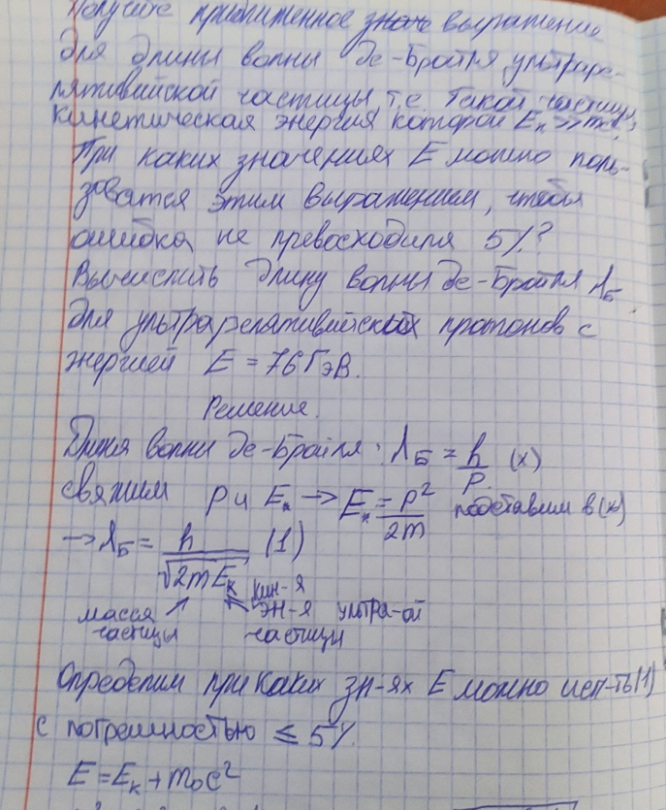 Получите приближенное выражение
для длины волны де-Бройля ультраре-
лятивийской частицы, т.е. такой частицы,
кинетическая энергия которой Eк >> mc²,
При каких значениях E можно поль-
зоватся этим выражением, чтобы
ошибка не превосходила 5%?
Вычислить длину волны де-Бройля λБ
для ультрарелятивийских протонов с
энергией E = 76 ГэВ.
Решение.
Длина волны де-Бройля: λБ = h/p (x)
свяжим p и Eк → Eк = p²/2m подставим в (x)
→ λБ = h/√2mEк (1)
масса частицы
кин-я эн-я ультра-ой частицы
Определим при каких зн-ях E можно исп-ть (1)
с погрешностью ≤ 5%.
E = Eк + m₀c²